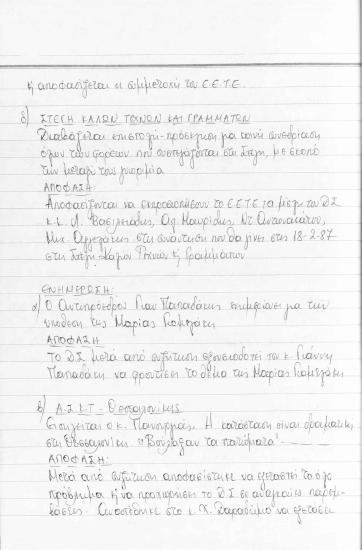 ή αποφασίζεται η συμμετοχή του Ε.Ε.Τ.Ε.
δ) ΣΤΕΓΗ ΚΑΛΩΝ ΤΕΧΝΩΝ ΚΑΙ ΓΡΑΜΜΑΤΩΝ
Διαβάζεται επιστολή-πρόσκληση για κοινή συνεδρίαση
όλων των φορέων που συστεγάζονται στη Στέγη, με σκοπό
την μεταξύ τους γνωριμία
ΑΠΟΦΑΣΗ:
Αποφασίζονται να εκπροσωπήσουν το ΕΕΤΕ τα μέλη του ΔΣ
κ.κ. Λ. Βασιλειάδης, Αλ. Μαυρίδης, Ντ. Αντωνακάτου,
Μιχ. Αγγελάκης στη συνάντηση που θα γίνει στις 18-2-87
στη Στέγη Καλών Τεχνών ή Γραμμάτων
ΕΝΗΜΕΡΩΣΗ:
α) Ο Αντιπρόεδρος Γιάν. Παπαδάκης ενημερώνει για την
υπόθεση της Μαρίας
ΑΠΟΦΑΣΗ
Το ΔΣ μετά από συζήτηση εξουσιοδοτεί τον κ. Γιάννη
Παπαδάκη να φροντίσει το θέμα της Μαρίας
β) Α.Σ.Κ.Τ - Θεσσαλονίκης
Εισηγείται ο κ. Η κατάσταση είναι δραματική
στη Θεσσαλονίκη. «Βούλιαξαν τα πατώματα»
ΑΠΟΦΑΣΗ:
Μετά από συζήτηση αποφασίστηκε να εξεταστεί το όλο
πρόβλημα ή να προχωρήσει το ΔΣ σε αναγκαίες παρεμ-
βάσεις. Ανατέθηκε στο κ. Χ. να εξετάσει